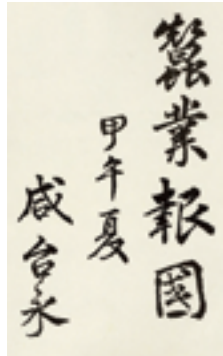 蠶業報國
甲午夏
咸台永